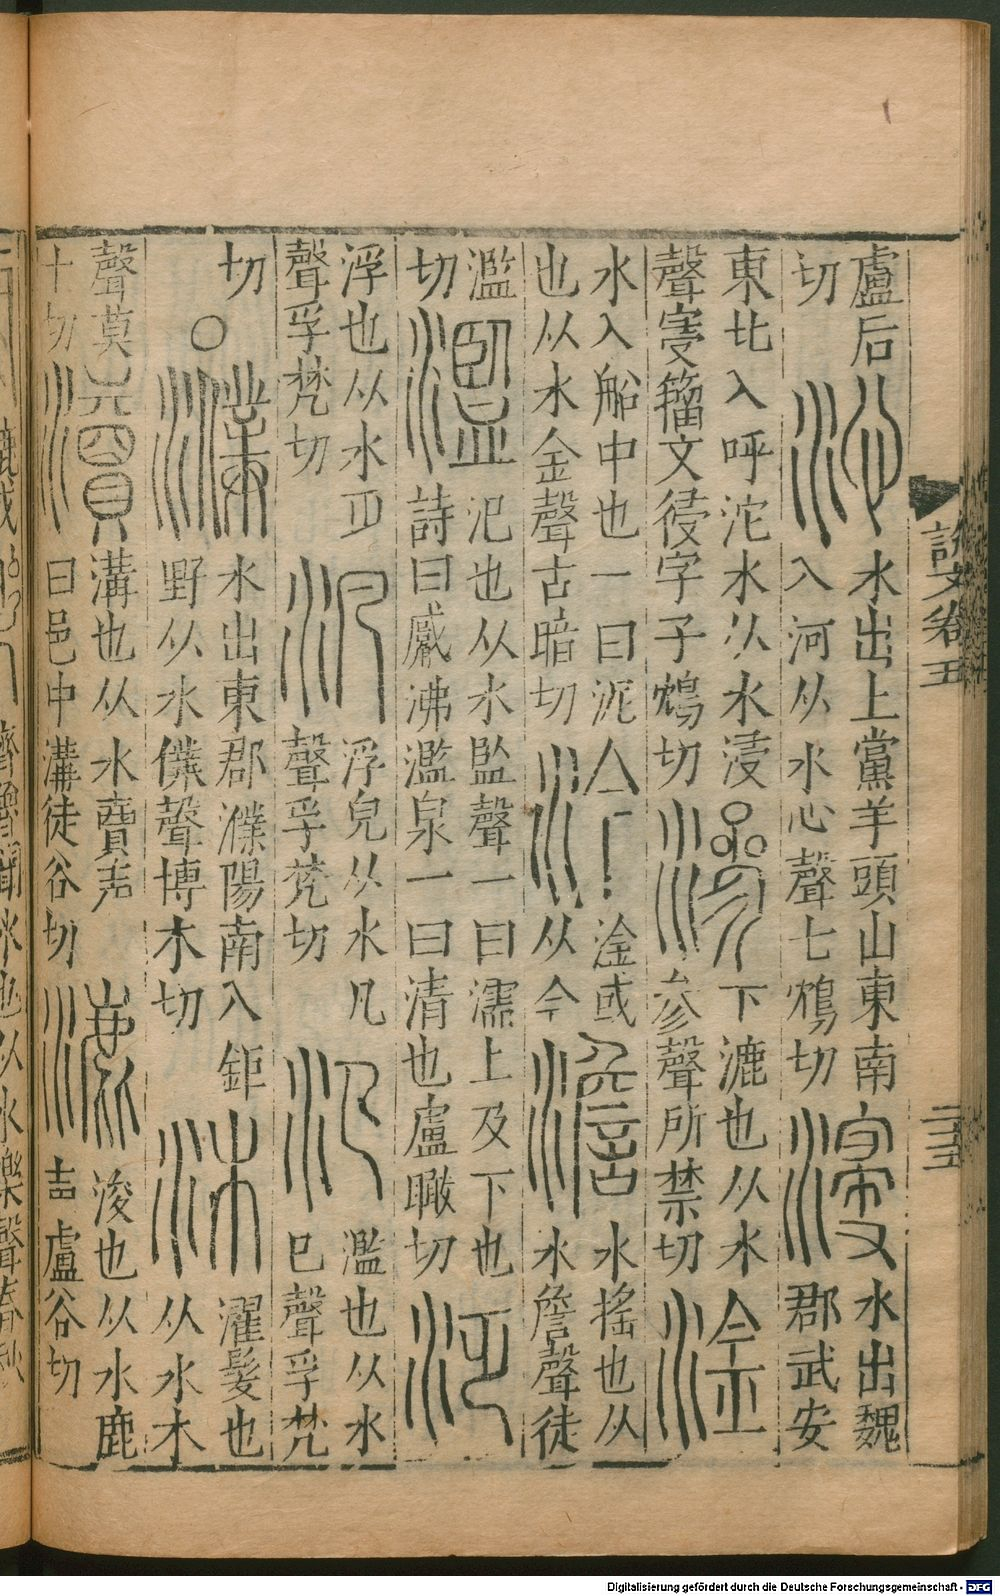 說文卷五 二五
盧后沁水出上黨羊頭山東南水出魏
切入河从水心聲七鴆切郡武安
東北入呼沱水从水浸滲下漉也从水淦
聲籀文侵字子鴆切參聲所禁切
水入船中也一曰泥汵淦或澹水搖也从
也从水金聲古暗切从今水詹聲徒
濫濫氾也从水監聲一曰濡上及下也泛
切詩曰觱沸濫泉一曰清也盧瞰切
浮也从水乏汎浮皃从水凡氾濫也从水
聲孚梵切聲孚梵切㔾聲孚梵
切○濮水出東郡濮陽南入鉅沐濯髮也
野从水僕聲博木切从水木
聲莫瀆溝也从水賣声漉浚也从水鹿
卜切曰邑中溝徒谷切盧谷切
Digitalisierung gefördert durch die Deutsche Forschungsgemeinschaft - DFG